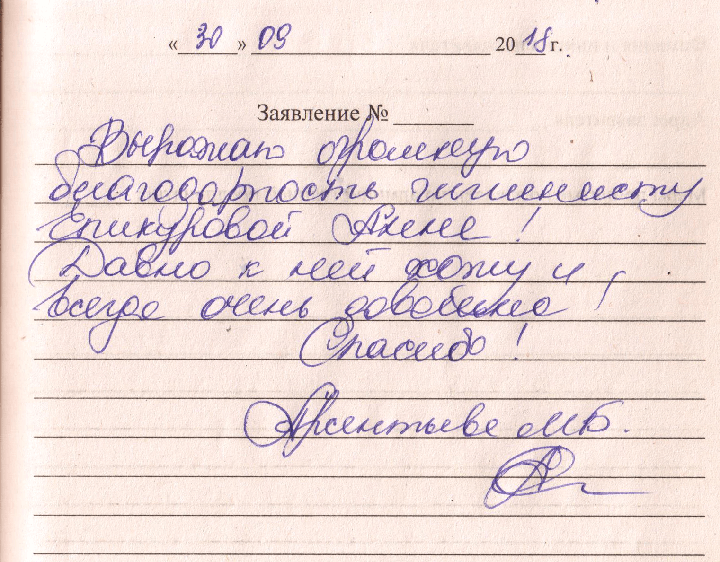 « 30 » 09 2018 г.
Заявление №
Выражаю огромную
благодарность гигиенисту
Епикуровой Анне!
Давно к ней хожу и
всегда очень довольна!
Спасибо!
Арсентьева М.Б.